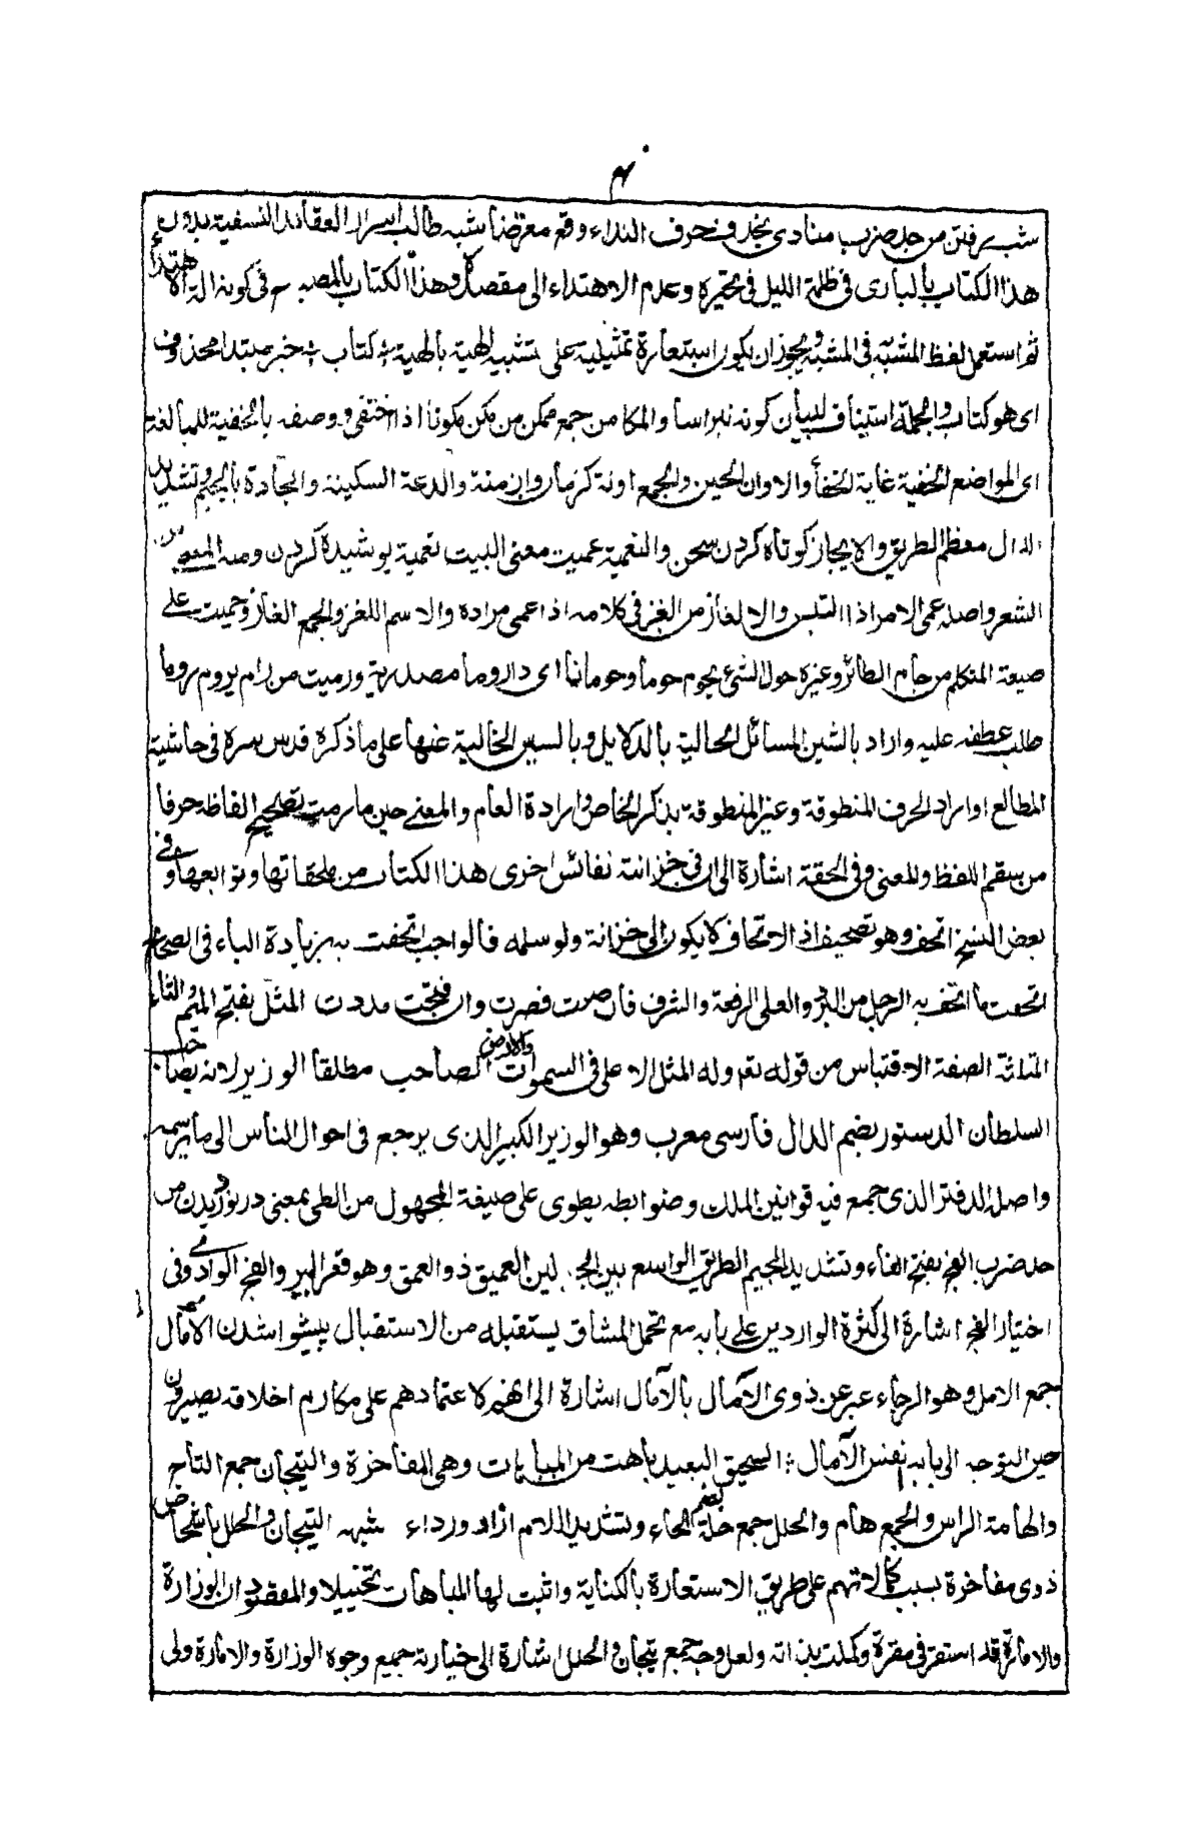 شب رفتن من حد ضرب منادى بحذف حرف النداء وقع معترضا شبه طالب اسرار العقائد النسفية بدون
هذا الكتاب بالبارى فى ظلمة الليل فى تحيره وعدم الاهتداء الى مقصده وهذا الكتاب بالمصبـ ـح فى كونه الة الاهتداء
ثم استعمل لفظ المشبه فى المشبه ويجوز ان يكون استعارة تمثيلية على تشبيه الهيئة بالهيئة كتاب خبر مبتدا محذوف
اى هو كتاب والجملة استيناف لبيان كونه نبراسا والمكامن جمع مكمن من مكن مكونا اذا اختفى ووصفه بالخفية للمبالغة
اى المواضع الخفية غاية الخفأ والاوان الحين والجمع اونة كزمان وازمنة والدعة السكينة والجادة بالجيم وتشديد
الدال معظم الطريق والايجاز كوتاه كردن سخن والتعمية عميت معنى البيت تعمية پوشيدة كردن ومنه المعمى من
الشعر واصله عمى الامر اذا التبس والالغاز من الغز فى كلامه اذا عمى مراده والاسم اللغز والجمع الغاز وحميت على
صيغة المتكلم من حام الطائر وغيره حول الشئ يحوم حوما وحومانا اى دار وما مصدرية ورميت من رام يروم روما
طلب عطفه عليه واراد بالشين المسائل الحالية بالدلايل وبالسين الخالية عنها على ما ذكره قدس سره فى حاشية
المطالع او اراد الحرف المنطوقة وغير المنطوقة بذكر الخاص وارادة العام والمعنى حين ما رمت تصحيح الفاظه حرفا
من سقم اللفظ والمعنى وفى الحقة اشارة الى ان فى خزانته نفائس اخرى هذا الكتاب من ملحقاتها وتوابعها وفى
بعض النسخ اتحف وهو تصحيف اذ الاتحاف لا يكون الى خزانة ولو سلم فالواجب اتحفت به بزيادة الباء فى الصحاح
اتحفت ما اتحف به الرجل من البر والعلى الرفعة والشرف فان ضمت قصرت وان فتحت مددت المثل بفتح الميم والثاء
المثلثة الصفة الاقتباس من قوله تعم وله المثل الاعلى فى السموات والارض الصاحب مطلقا الوزير لانه يصاحب
السلطان الدستور بضم الدال فارسى معرب وهو الوزير الكبير الذى يرجع فى احوال الناس الى ما يرسمه
واصله الدفتر الذى جمع فيه قوانين الملك وضوابطه يطوى على صيغة المجهول من الطى بمعنى در نورديدن من
حد ضرب الفج بفتح الفاء وتشديد الجيم الطريق الواسع بين الجبلين العميق ذو العمق وهو قعر البير والفج الوادى وفى
اختيار الفج اشارة الى كثرة الواردين على بابه مع تحمل المشاق يستقبله من الاستقبال پيشوا شدن الآمال
جمع الامل وهو الرجاء عبر عن ذوى الآمال بالآمال اشارة الى انهم لاعتمادهم على مكارم اخلاقه يصيرون
حين التوجه الى بابه نفس الآمال السحيق البعيد باهت من المباهات وهى المفاخرة والتيجان جمع التاج
والهامة الراس والجمع هام والحلل جمع حلة بضم الحاء وتشديد اللام ازار ورداء شبه التيجان والحلل باشخاص
ذوى مفاخرة بسبب كمالاتهم على طريق الاستعارة بالكناية واثبت لها المباهات تخييلا والمقصود ان الوزارة
والامارة قد استقر فى مقره وكملت بذاته ولعل وجه جمع تيجان والحلل اشارة الى خيارته جميع وجوه الوزارة والامارة ولى